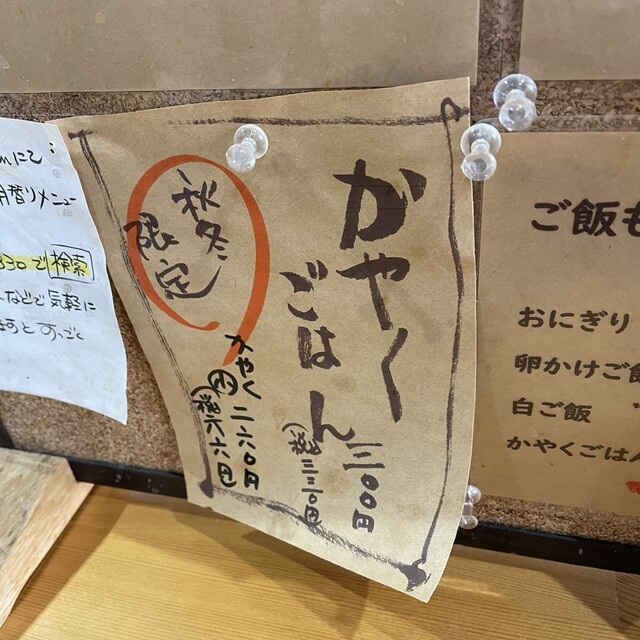 かやく
ごはん
三〇〇円
(税込)三三〇円
秋冬
限定
かやく(小)二六〇円
にて
月替りメニュー
330で検索
などで気軽に
ご飯も
おにぎり
卵かけご飯
白ご飯
かやくごはん